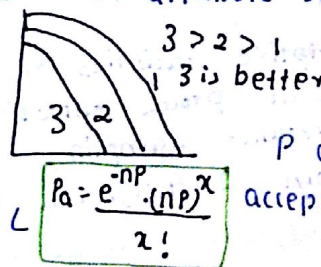 3 > 2 > 1
1 3 is better
3 2
P
L Pa = e^-np . (np)^x / x! accep